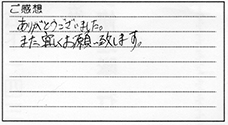 ご感想
ありがとうございました。
また宜しくお願い致します。